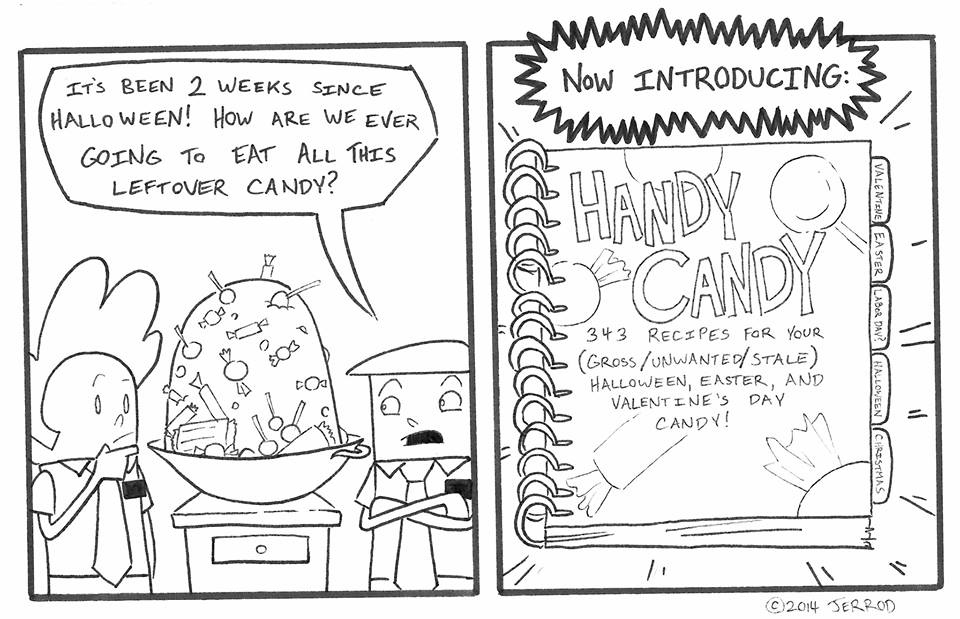 IT'S BEEN 2 WEEKS SINCE
HALLOWEEN! HOW ARE WE EVER
GOING TO EAT ALL THIS
LEFTOVER CANDY?
NOW INTRODUCING:
HANDY
CANDY
343 RECIPES FOR YOUR
(GROSS/UNWANTED/STALE)
HALLOWEEN, EASTER, AND
VALENTINE'S DAY
CANDY!
VALENTINE
EASTER
LABOR DAY?
HALLOWEEN
CHRISTMAS
©2014 JERROD